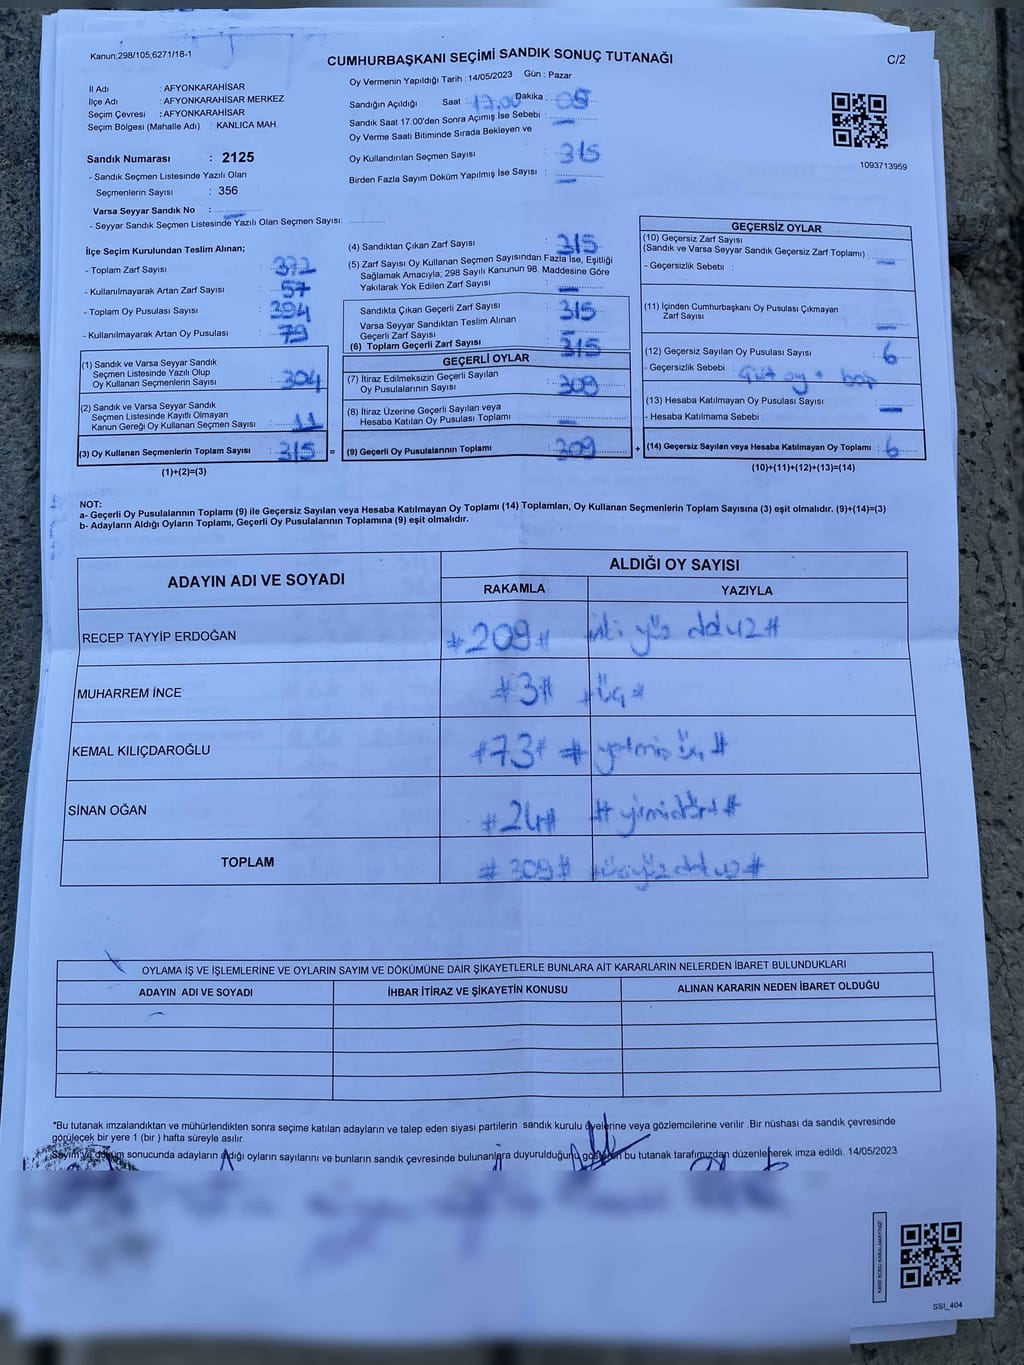 Kanun;298/105;6271/18-1
CUMHURBAŞKANI SEÇİMİ SANDIK SONUÇ TUTANAĞI
C/2
İl Adı : AFYONKARAHİSAR
İlçe Adı : AFYONKARAHİSAR MERKEZ
Seçim Çevresi : AFYONKARAHİSAR
Seçim Bölgesi (Mahalle Adı) : KANLICA MAH.
Sandık Numarası : 2125
- Sandık Seçmen Listesinde Yazılı Olan
Seçmenlerin Sayısı : 356
Varsa Seyyar Sandık No :
- Seyyar Sandık Seçmen Listesinde Yazılı Olan Seçmen Sayısı:
Oy Vermenin Yapıldığı Tarih : 14/05/2023 Gün : Pazar
Sandığın Açıldığı Saat : 17.00 Dakika : 05
Sandık Saat 17:00'den Sonra Açımış İse Sebebi : —
Oy Verme Saati Bitiminde Sırada Bekleyen ve
Oy Kullandırılan Seçmen Sayısı : 315
Birden Fazla Sayım Döküm Yapılmış İse Sayısı : —
1093713959
İlçe Seçim Kurulundan Teslim Alınan;
- Toplam Zarf Sayısı : 372
- Kullanılmayarak Artan Zarf Sayısı : 57
- Toplam Oy Pusulası Sayısı : 394
- Kullanılmayarak Artan Oy Pusulası : 79
(1) Sandık ve Varsa Seyyar Sandık
Seçmen Listesinde Yazılı Olup
Oy Kullanan Seçmenlerin Sayısı : 304
(2) Sandık ve Varsa Seyyar Sandık
Seçmen Listesinde Kayıtlı Olmayan
Kanun Gereği Oy Kullanan Seçmen Sayısı : 11
(3) Oy Kullanan Seçmenlerin Toplam Sayısı : 315 =
(1)+(2)=(3)
(4) Sandıktan Çıkan Zarf Sayısı : 315
(5) Zarf Sayısı Oy Kullanan Seçmen Sayısından Fazla İse, Eşitliği
Sağlamak Amacıyla; 298 Sayılı Kanunun 98. Maddesine Göre
Yakılarak Yok Edilen Zarf Sayısı : —
Sandıkta Çıkan Geçerli Zarf Sayısı : 315
Varsa Seyyar Sandıktan Teslim Alınan
Geçerli Zarf Sayısı :
(6) Toplam Geçerli Zarf Sayısı : 315
GEÇERLİ OYLAR
(7) İtiraz Edilmeksizin Geçerli Sayılan
Oy Pusulalarının Sayısı : 309
(8) İtiraz Üzerine Geçerli Sayılan veya
Hesaba Katılan Oy Pusulası Toplamı : —
(9) Geçerli Oy Pusulalarının Toplamı : 309 +
GEÇERSİZ OYLAR
(10) Geçersiz Zarf Sayısı
(Sandık ve Varsa Seyyar Sandık Geçersiz Zarf Toplamı) : —
- Geçersizlik Sebebi :
(11) İçinden Cumhurbaşkanı Oy Pusulası Çıkmayan
Zarf Sayısı : —
(12) Geçersiz Sayılan Oy Pusulası Sayısı : 6
- Geçersizlik Sebebi : oy + boş
(13) Hesaba Katılmayan Oy Pusulası Sayısı : —
- Hesaba Katılmama Sebebi :
(14) Geçersiz Sayılan veya Hesaba Katılmayan Oy Toplamı : 6
(10)+(11)+(12)+(13)=(14)
NOT:
a- Geçerli Oy Pusulalarının Toplamı (9) ile Geçersiz Sayılan veya Hesaba Katılmayan Oy Toplamı (14) Toplamları, Oy Kullanan Seçmenlerin Toplam Sayısına (3) eşit olmalıdır. (9)+(14)=(3)
b- Adayların Aldığı Oyların Toplamı, Geçerli Oy Pusulalarının Toplamına (9) eşit olmalıdır.
ADAYIN ADI VE SOYADI
ALDIĞI OY SAYISI
RAKAMLA YAZIYLA
RECEP TAYYİP ERDOĞAN #209# iki yüz dokuz#
MUHARREM İNCE #3# #üç#
KEMAL KILIÇDAROĞLU #73# # yetmiş üç #
SİNAN OĞAN #24# # yirmidört #
TOPLAM #309# #üçyüz dokuz#
OYLAMA İŞ VE İŞLEMLERİNE VE OYLARIN SAYIM VE DÖKÜMÜNE DAİR ŞİKAYETLERLE BUNLARA AİT KARARLARIN NELERDEN İBARET BULUNDUKLARI
ADAYIN ADI VE SOYADI İHBAR İTİRAZ VE ŞİKAYETİN KONUSU ALINAN KARARIN NEDEN İBARET OLDUĞU
*Bu tutanak imzalandıktan ve mühürlendikten sonra seçime katılan adayların ve talep eden siyasi partilerin sandık kurulu üyelerine veya gözlemcilerine verilir .Bir nüshası da sandık çevresinde
görülecek bir yere 1 (bir ) hafta süreyle asılır.
Sayım ve döküm sonucunda adayların aldığı oyların sayılarını ve bunların sandık çevresinde bulunanlara duyurulduğunu gösteren bu tutanak tarafımızdan düzenlenerek imza edildi. 14/05/2023
KARE KODU KARALAMAYINIZ!
SSI_404